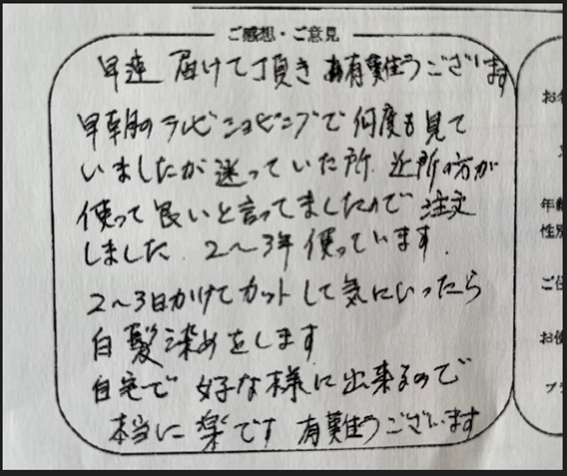 ご感想・ご意見
早速 届けて頂き 有難うございます
早朝のテレビショピングで何度も見て
いましたが迷っていた所、近所の方が
使って良いと言ってましたので注文
しました、2〜3年使っています。
2〜3日かけてカットして気にいったら
白髪染めをします
自宅で好きな様に出来るので
本当に楽です 有難うございます
お
年齢
性別
ご住
お使